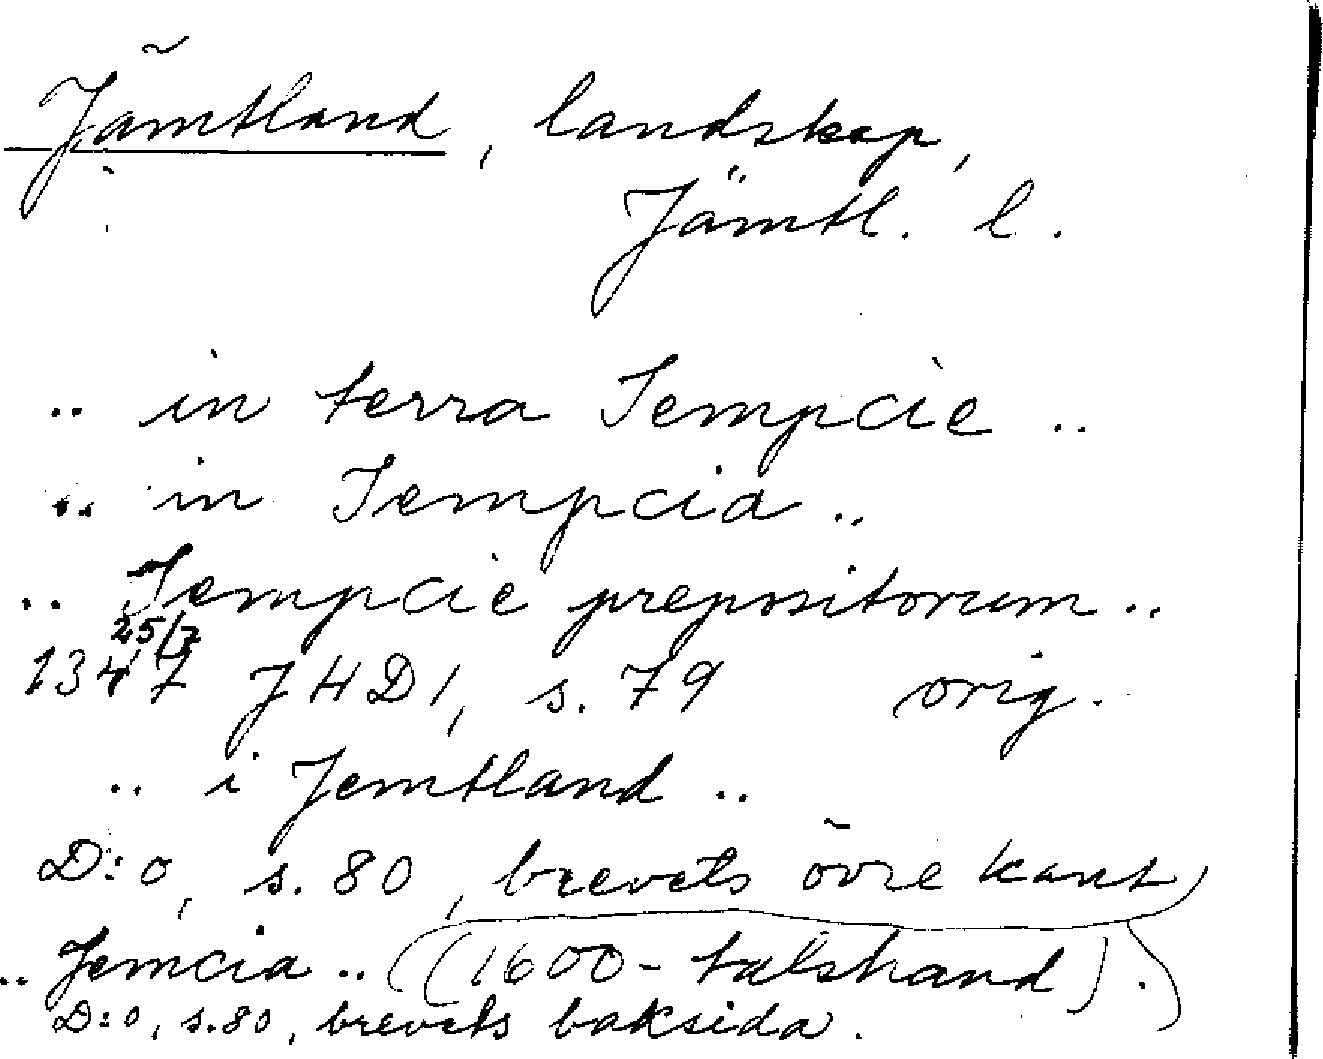 Jämtland, landskap,
Jämtl. l.
.. in terra Iempcie ..
.. in Iempcia ..
.. Iempcie prepositorum ..
25/7
1347 JHD1, s. 79 orig.
.. i Jemtland ..
D:o, s. 80, brevets övre kant
.. Jemcia .. (1600-talshand).
D:o, s. 80, brevets baksida.